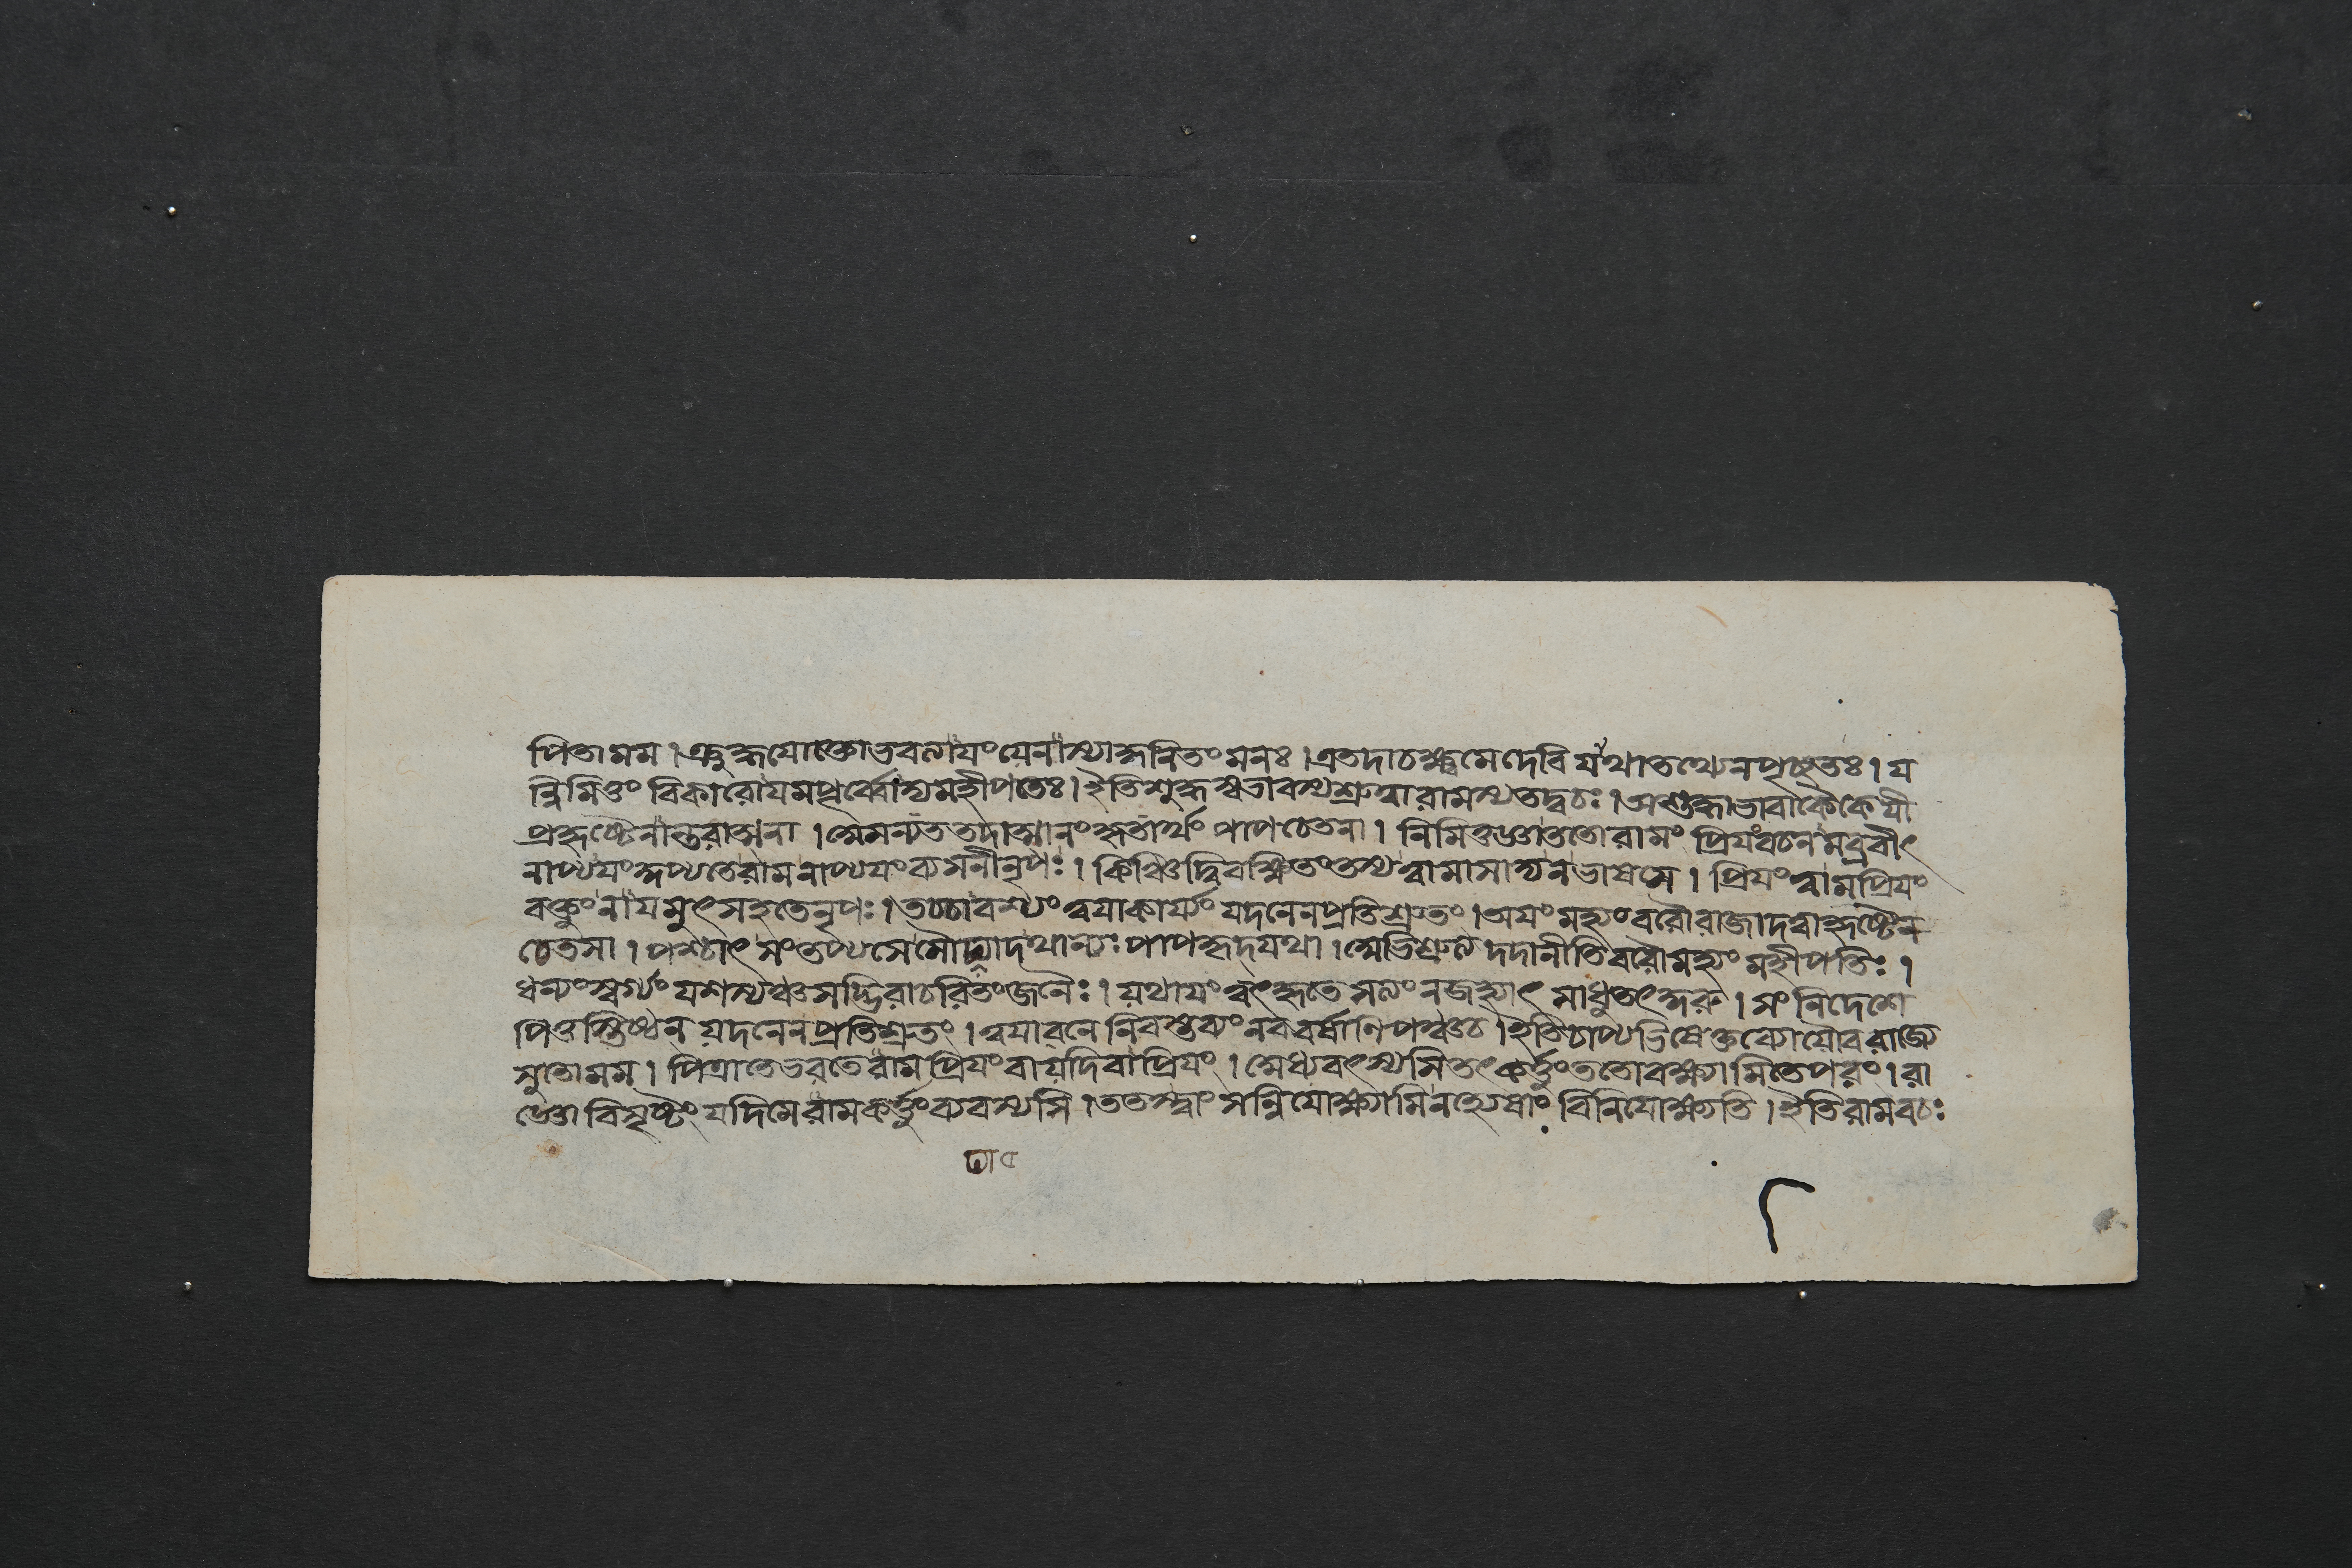 পিতামম। ক্রুদ্ধযোক্তোভবত্যাযংযেনাস্যাকুলিতংমনঃ।এতদাচক্ষ্বমেদেবিযথাতত্থ্যেনপৃচ্ছতঃ।য
ন্নিমিত্তং বিকারোযমপূর্ব্বোস্যমহীপতেঃ।ইতিশুদ্ধস্বভাবস্যশ্রুত্বারামস্যতদ্বচঃ।অশুদ্ধভাবাকৈকেযী
প্রহৃষ্টেনান্তরাত্মনা।অমন্যততদাত্মানংকৃতার্থং পাপচেতনা। নিমিত্তজ্ঞাততোরামং প্রিযংবচনমব্রবীৎ
নাপ্যযংকুপ্যতেরামনাপ্যযংব্যসনীনৃপঃ। কিঞ্চিদ্বিবক্ষিতংতস্যত্বামাসাদ্যনভাষতে। প্রিযংত্বামপ্রিযং
বক্তুংনাযমুৎসহতেনৃপঃ।তচ্চাবশ্যংত্বযাকার্য্যং যদনেনপ্রতিশ্রুতং।অযংমহ্যংবরৌরাজাদত্বাহৃষ্টেন
চেতসা। পশ্চাৎ সংতপ্যসেমৌঢ্যাদথান্যঃপাপকৃদ্যথা। দদানীতিবরৌমহ্যং মহীপতিঃ।
ধন্যংস্বর্গ্যংযশস্যঞ্চসদ্ভিরাচরিতংজনৈঃ। যথাযংত্বৎকৃতেসত্যংনজহ্যাৎ সাধুতৎকুরু। সংনিদেশে
পিতুস্তিষ্ঠেন যদনেনপ্রতিশ্রুতং।ত্বযাবনেনিবস্তব্যংনববর্ষাণিপঞ্চচ।ইতিচাপ্যভিষেক্তব্যোযৌবরাজ্যে
সুতোমম। পিত্রাতেভরতেরামপ্রিযংবাযদিবাপ্রিযং। তৎকর্ত্তুংততোবক্ষ্যামিতেপরং।রা
জ্ঞো বিসৃষ্টং যদিমেরামকর্ত্তুংব্যবস্যসি।ততস্ত্বাং সন্নিযোক্ষ্যামিনহ্যেষত্বাং বিনিযোক্ষ্যতি।ইতিরামবচঃ